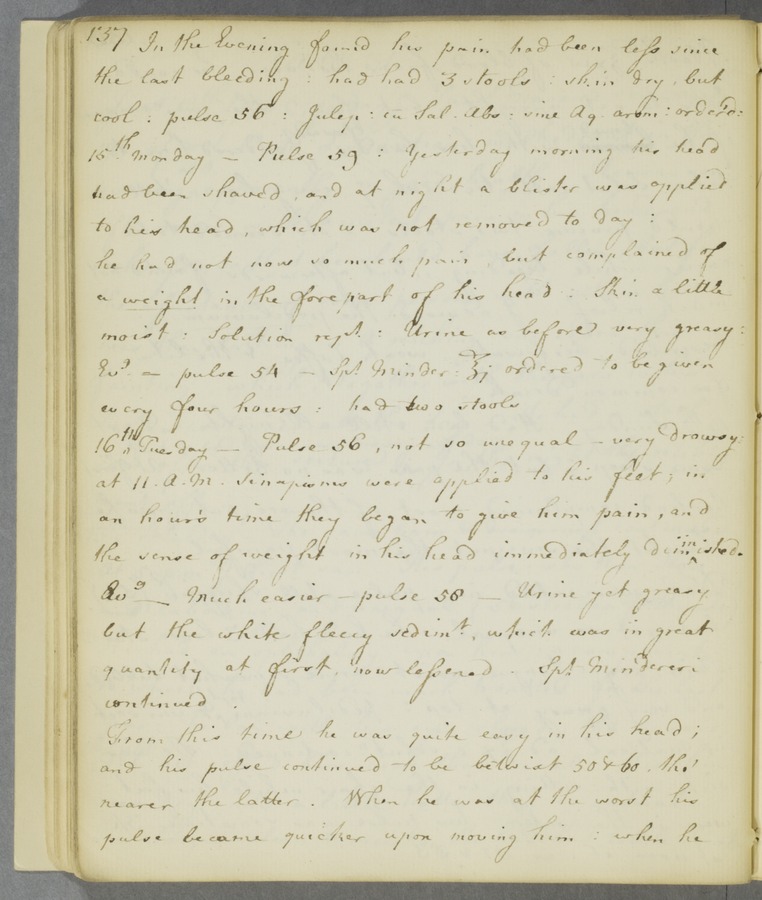 137 In the Evening found his pain had been less since
the last bleeding : had had 3 stools : skin dry, but
cool : pulse 56 : Julep : cu Sal. Abs : sine Aq. arom : ordered :
15th Monday — Pulse 59 : Yesterday morning his head
had been shaved, and at night a blister was applied
to his head, which was not removed to day :
he had not now so much pain, but complained of
a weight in the forepart of his head : Skin a little
moist : Solution rept. : Urine as before very greasy :
Evg. — pulse 54 — Spt. Minder : ʒj ordered to be given
every four hours : had two stools
16th, Tuesday — Pulse 56, not so unequal — very drowsy :
at 11. A.M. sinapisms were applied to his feet ; in
an hour's time they began to give him pain, and
the sense of weight in his head immediately diminished.
Evg — Much easier — pulse 58 — Urine yet greasy
but the white fleecy sedimt. which was in great
quantity at first, now lessened. Spt. Mindereri
continued.
From this time he was quite easy in his head ;
and his pulse continued to be betwixt 50 & 60, tho'
nearer the latter. When he was at the worst his
pulse became quicker upon moving him : when he